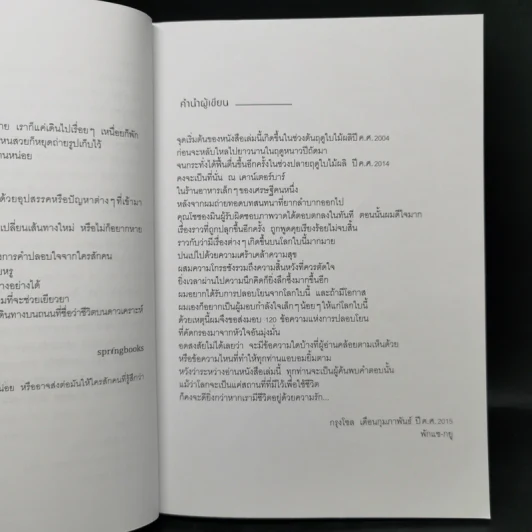 าย เราก็แค่เดินไปเรื่อยๆ เหนื่อยก็พัก
หนสวยก็หยุดถ่ายรูปเก็บไว้
นหน่อย
ด้วยอุปสรรคหรือปัญหาต่างๆ ที่เข้ามา
เปลี่ยนเส้นทางใหม่ หรือไม่ก็อยากหาย
งการคำปลอบใจจากใครสักคน
ยหรู
างอย่างได้
มที่จะช่วยเยียวยา
ดินทางบนถนนที่ชื่อว่าชีวิตบนดาวเคราะห์
springbooks
น่อย หรืออาจส่งต่อมันให้ใครสักคนที่รู้สึกว่า
คำนำผู้เขียน
จุดเริ่มต้นของหนังสือเล่มนี้เกิดขึ้นในช่วงต้นฤดูใบไม้ผลิปี ค.ศ. 2004
ก่อนจะหลับใหลไปยาวนานในฤดูหนาวปีถัดมา
จนกระทั่งได้ฟื้นตื่นขึ้นอีกครั้งในช่วงปลายฤดูใบไม้ผลิ ปี ค.ศ. 2014
คงจะเป็นที่นั่น ณ เคาน์เตอร์บาร์
ในร้านอาหารเล็กๆ ของเศรษฐีคนหนึ่ง
หลังจากผมถ่ายทอดบทสนทนาที่ยากลำบากออกไป
คุณโชของมินผู้รับผิดชอบภาพวาดได้ตอบตกลงในทันที ตอนนั้นผมดีใจมาก
เรื่องราวที่ถูกปลุกขึ้นอีกครั้ง ถูกพูดคุยเรียงร้อยไม่จบสิ้น
ราวกับว่ามีเรื่องต่างๆ เกิดขึ้นบนโลกใบนี้มากมาย
ปนเปไปด้วยความเศร้าเคล้าความสุข
ผสมความโกรธชังรวมถึงความสิ้นหวังที่ควรตัดใจ
ยิ่งเวลาผ่านไปความนึกคิดก็ยิ่งลึกซึ้งมากขึ้นอีก
ผมอยากได้รับการปลอบโยนจากโลกใบนี้ และถ้ามีโอกาส
ผมเองก็อยากเป็นผู้มอบกำลังใจเล็กๆ น้อยๆ ให้แก่โลกใบนี้
ด้วยเหตุนี้ผมจึงขอส่งมอบ 120 ข้อความแห่งการปลอบโยน
ที่คัดกรองมาจากหัวใจอันมุ่งมั่น
อดสงสัยไม่ได้เลยว่า จะมีข้อความใดบ้างที่ผู้อ่านคล้อยตามเห็นด้วย
หรือข้อความไหนที่ทำให้ทุกท่านแอบอมยิ้มตาม
หวังว่าระหว่างอ่านหนังสือเล่มนี้ ทุกท่านจะเป็นผู้ค้นพบคำตอบนั้น
แม้ว่าโลกจะเป็นแค่สถานที่ที่มีไว้เพื่อใช้ชีวิต
ก็คงจะดียิ่งกว่าหากเรามีชีวิตอยู่ด้วยความรัก...
กรุงโซล เดือนกุมภาพันธ์ ปี ค.ศ. 2015
พักแช-กยู